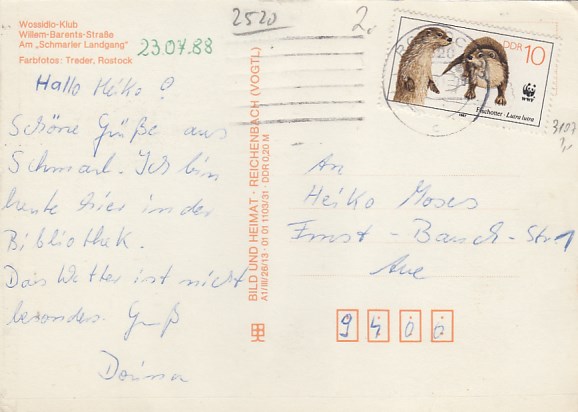 Wossidlo-Klub
Willem-Barents-Straße
Am „Schmarler Landgang"
Farbfotos: Treder, Rostock
23.07.88
2520
2,
Hallo Heiko!
Schöne Grüße aus
Schmarl. Ich bin
heute hier in der
Bibliothek.
Das Wetter ist nicht
besonders. Gruß
BILD UND HEIMAT · REICHENBACH (VOGTL)
A1/III/26/13 · 01 01 1103/31 · DDR 0,20 M
DDR 10
WWF
Fischotter · Lutra lutra
3107
An
Heiko Moses
Ernst-Busch-Str. 1
Aue
9400